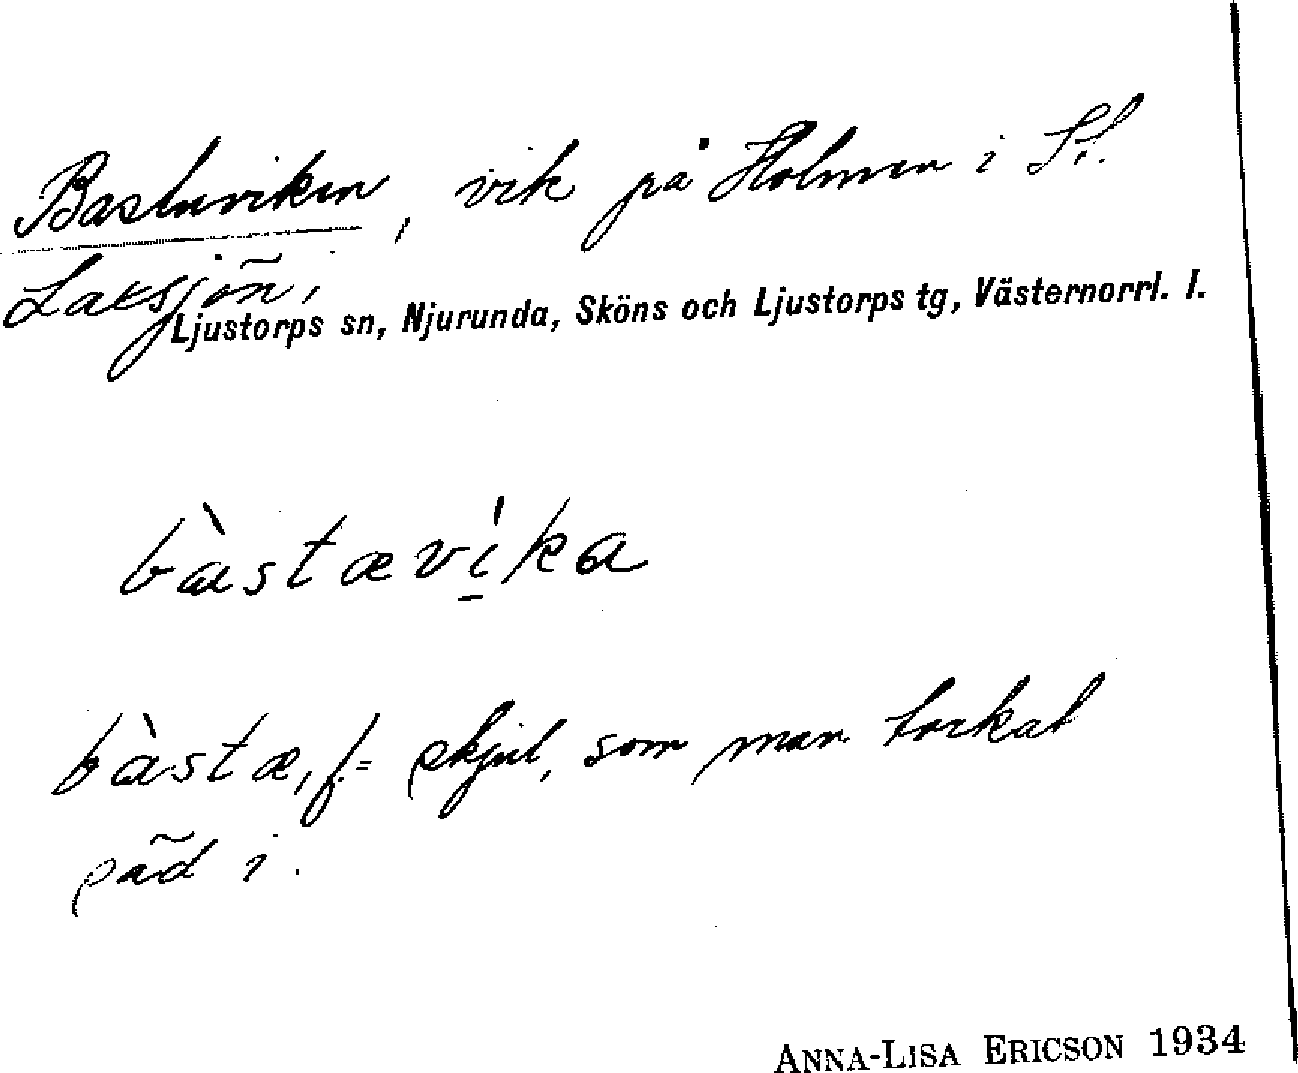 Bastuviken, vik på Holmen i St.
Laksjön,
Ljustorps sn, Njurunda, Sköns och Ljustorps tg, Västernorrl. l.
bàstævíka
bàstæ, f. = skjul, som man torkat
säd i.
ANNA-LISA ERICSON 1934